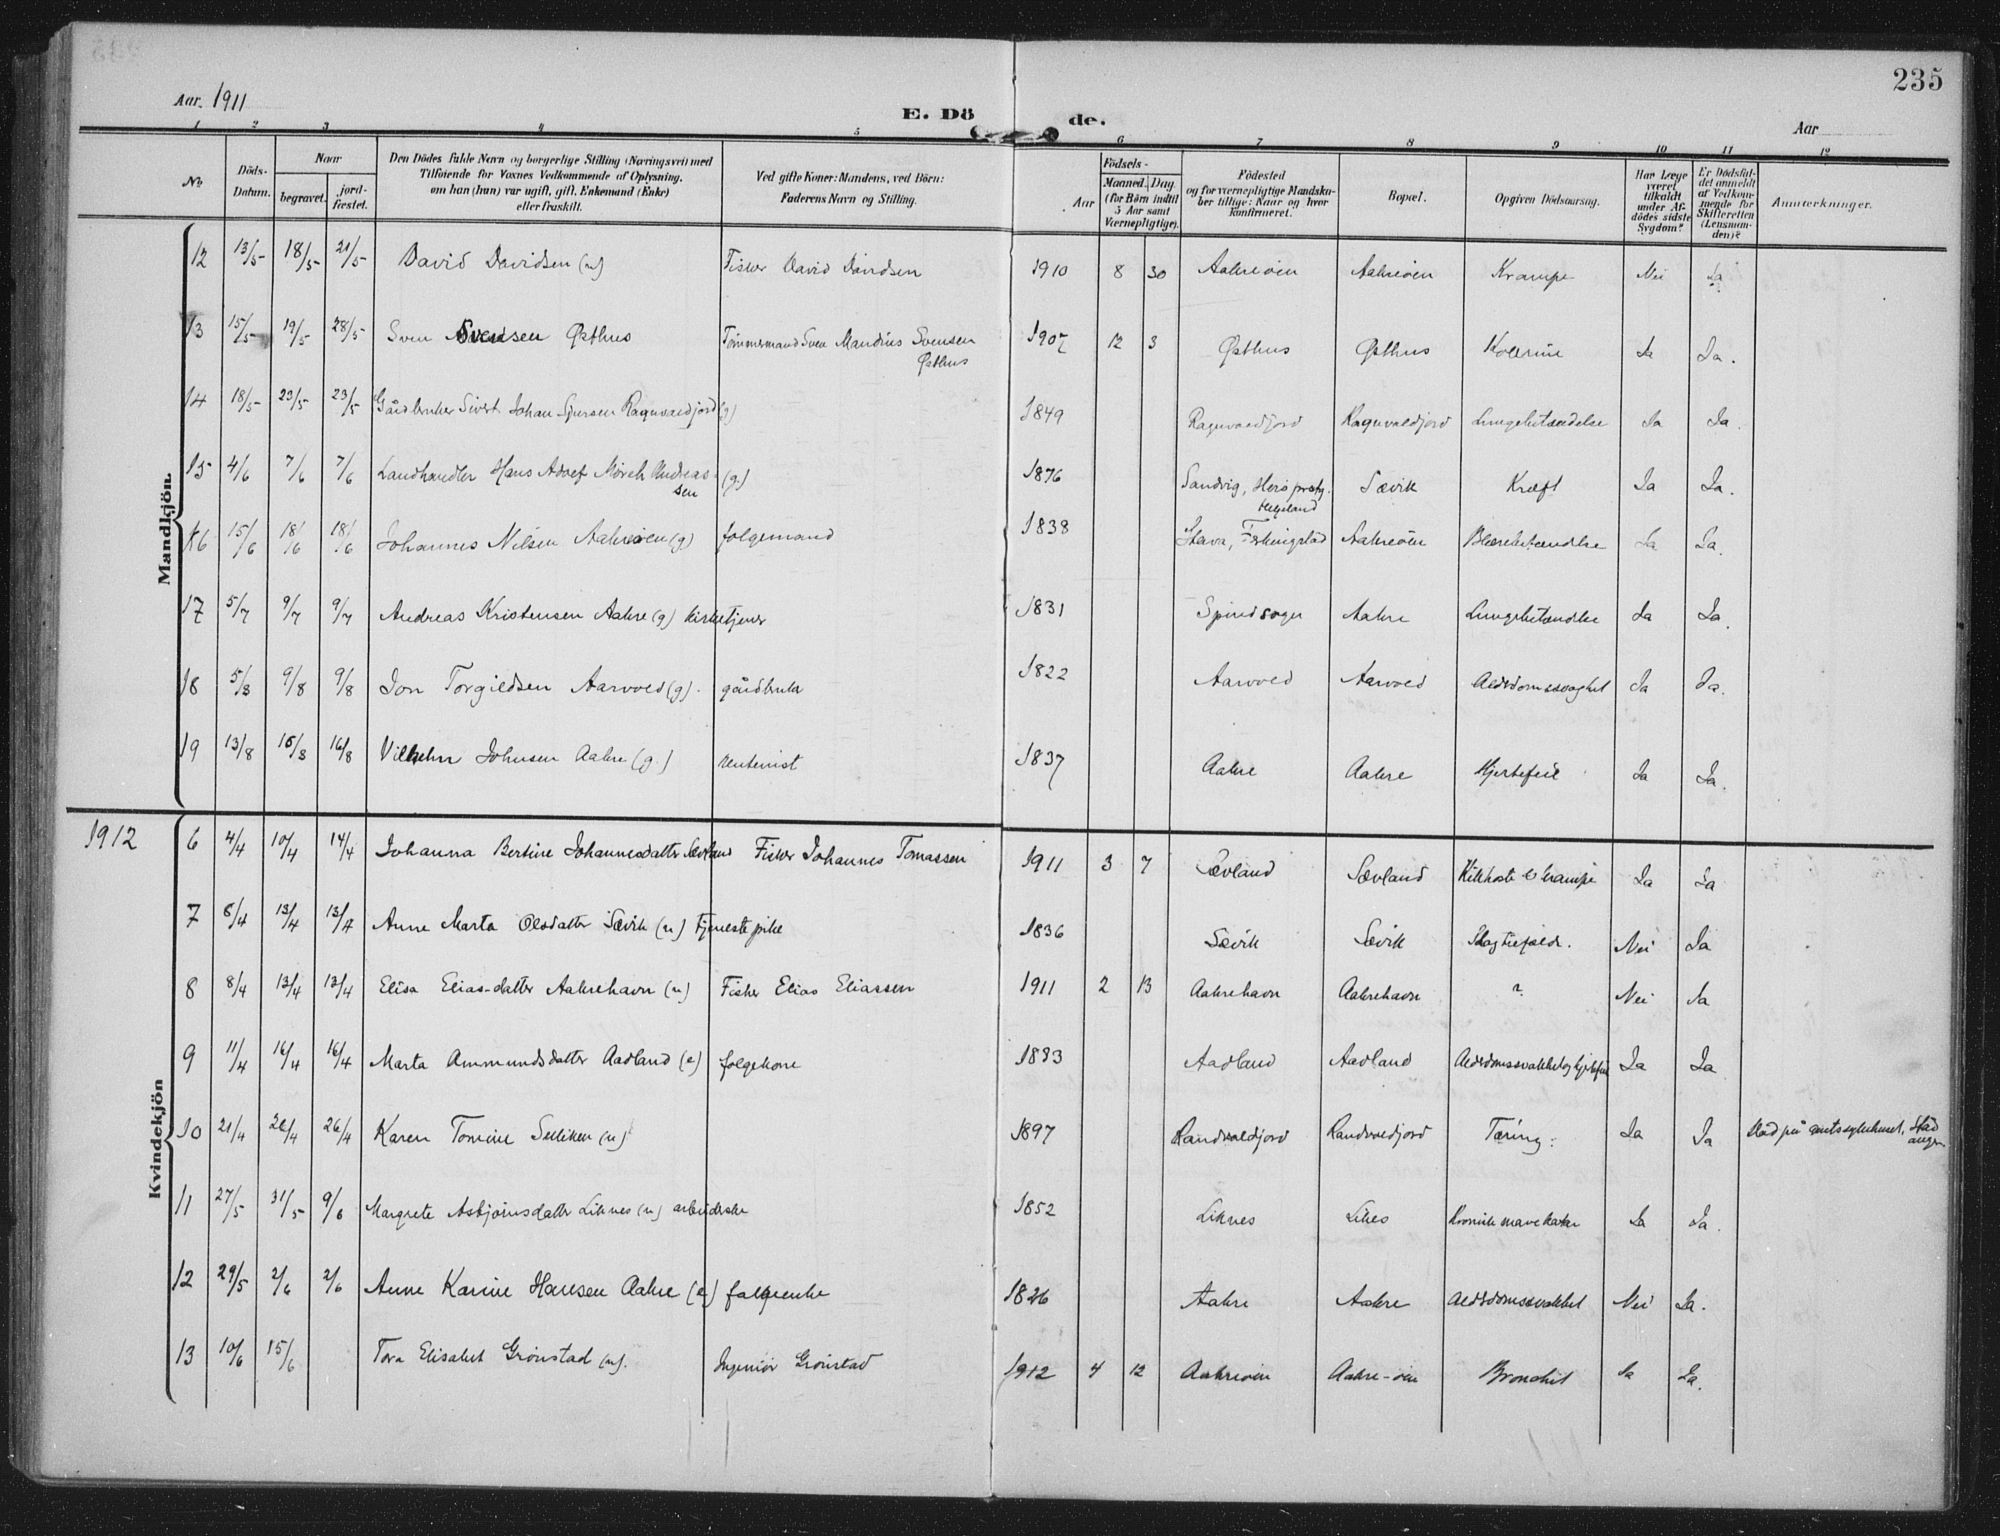 235
Aar. 1911
E. Dö de.
Aar
1 2 3 4 5 6 7 8 9 10 11 12
No.
Döds-Datum.
Naar
begravet.
jord-festet.
Den Dödes fulde Navn og borgerlige Stilling (Næringsvei) med
Tilföiende for Voxnes Vedkommende af Oplysning,
om han (hun) var ugift, gift, Enkemand (Enke)
eller fraskilt.
Ved gifte Koner: Mandens, ved Börn:
Faderens Navn og Stilling.
Födsels-
Aar
Maaned. Dag.
(for Börn indtil
5 Aar samt
Værnepligtige).
Födested
og for værnepligtige Mandska-
ber tillige: Naar og hvor
konfirmeret.
Bopæl.
Opgiven Dödsaarsag.
Har Læge
været
tilkaldt
under Af-
dödes sidste
Sygdom?
Er Dödsfal-
det anmeldt
af Vedkom-
mende for
Skifteretten
(Lensman-
den)?
Anmærkninger.
Mandkjön.
12 13/5 18/5 21/5 David Davidsen (u) Fisker David Davidsen 1910 8 30 Aakreöen Aakreöen Krampe Nei Ja
13 15/5 19/5 28/5 Sven Svensen Østhus Tømmermand Sven Mandius Svensen Østhus 1907 12 3 Østhus Østhus Ja Ja.
14 18/5 23/5 23/5 Gårdbruker Sivert Johan Sjursen Ragnvaldjord (g) 1849 Ragnvaldjord Ragnvaldjord Lungebetændelse Ja Ja.
15 4/6 7/6 7/6 Landhandler Hans Adolf Mörch Andreas-
sen (g.) 1876 Sandvig, Herö prstg. Helgeland Sævik Kræft Ja Ja.
16 15/6 18/6 18/6 Johannes Nilsen Aakreöen (g) folgemand 1838 Stava, Ferkingstad Aakreöen Blærebetændelse Ja Ja.
17 5/7 9/7 9/7 Andreas Kristensen Aakre (g) kirketjener 1831 Spind sogn Aakre Lungebetændelse Ja Ja.
18 5/8 9/8 9/8 Jon Torgildsen Aarvold (g). gårdbruker 1822 Aarvold Aarvold Alderdomssvaghet Ja Ja.
19 13/8 16/8 16/8 Vilhelm Johnsen Aakre (g.) rentenist 1837 Aakre Aakre Hjertefeil Ja Ja.
1912
Kvindekjön
6 4/4 10/4 14/4 Johanna Bertine Johannesdatter Sævland Fisker Johannes Tomassen 1911 3 7 Sævland Sævland Kikhoste & krampe Ja Ja
7 8/4 13/4 13/4 Anne Marta Olsdatter Sævik (u) tjenestepike 1836 Sævik Sævik Slagtilfælde. Nei Ja
8 8/4 13/4 13/4 Elisa Elias-datter Aakrehavn (u) Fisker Elias Eliassen 1911 2 13 Aakrehavn Aakrehavn ? Nei Ja
9 11/4 16/4 16/4 Marta Ammundsdatter Aadland (e) folgekone 1833 Aadland Aadland Alderdomssvakhet og hjertefeil Ja Ja
10 21/4 26/4 26/4 Karen Tomine (u) 1897 Randvaldjord Randvaldjord Tæring. Ja Ja död på amtssykehuset, Stavanger.
11 27/5 31/5 9/6 Margrete Asbjörnsdatter Liknes (u) arbeiderske 1852 Liknes Liknes Kronisk mavekatar Ja Ja.
12 29/5 2/6 2/6 Anne Karine Hansen Aakre (e) folgeenke 1826 Aakre Aakre Alderdomssvakhet Nei Ja.
13 10/6 15/6 Tora Elisabet Grönstad (u). Ingeniör Grönstad 1912 4 12 Aakreöen Aakre-öen Bronchit Ja Ja.